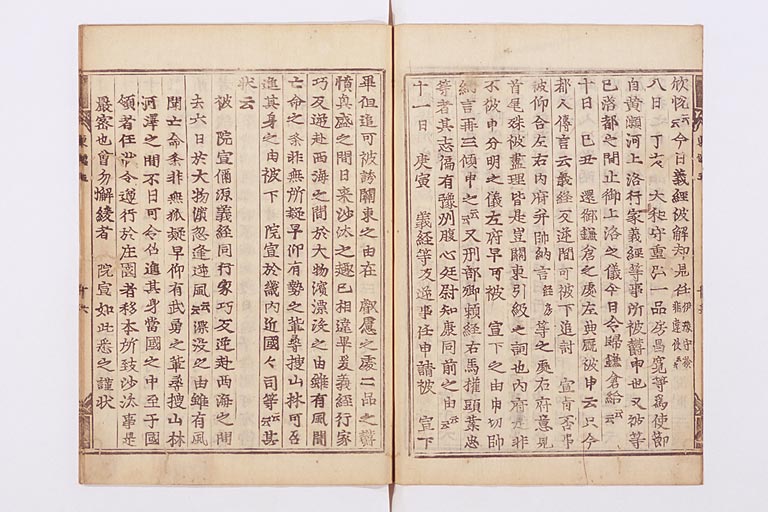 欣悦云云今日義経被解却見任伊豫守兼
八日丁亥 大和守重弘一品房昌寛等為使節
自黄瀬河上洛行家義経等事所被欝申也又彼等
已落都之間止御上洛之儀今日令歸鎌倉給云云
十日己丑 還御鎌倉之處左典厩被申云只今
都人傳言云義経反逆間可被下追討 宣旨否事
被仰合左右内府并帥納言経房等之處右府意見
首尾殊被盡理皆是豈關東引級之詞也内府是非
不被申分明之儀左府早可被 宣下之由申切帥
納言再三傾申之云云又刑部卿頼経右馬權頭業忠
等者其志偏有豫州腹心廷尉知康同前之由云云
十一日 庚寅 義経等反逆事任申請被 宣下
畢但追可被誘關東之由在 叡慮之處二品之欝
憤興盛之間日来沙汰之趣已相違畢義経行家
巧反逆赴西海之間於大物濱漂没之由雖有風聞
亡命之条非無所疑早仰有勢之輩尋搜山林可召
進其身之由被下 院宣於畿内近國々司等云云其
状云
被 院宣偁源義経同行家巧反逆赴西海之間
去六日於大物濱忽逢逆風云云漂没之由雖有風
聞亡命条非無狐疑早仰有武勇之輩尋搜山林
河澤之間不日可令召進其身當國之中至于國
領者任状令遵行於庄園者移本所致沙汰事是
嚴密也曾勿懈緩者 院宣如此悉之謹状